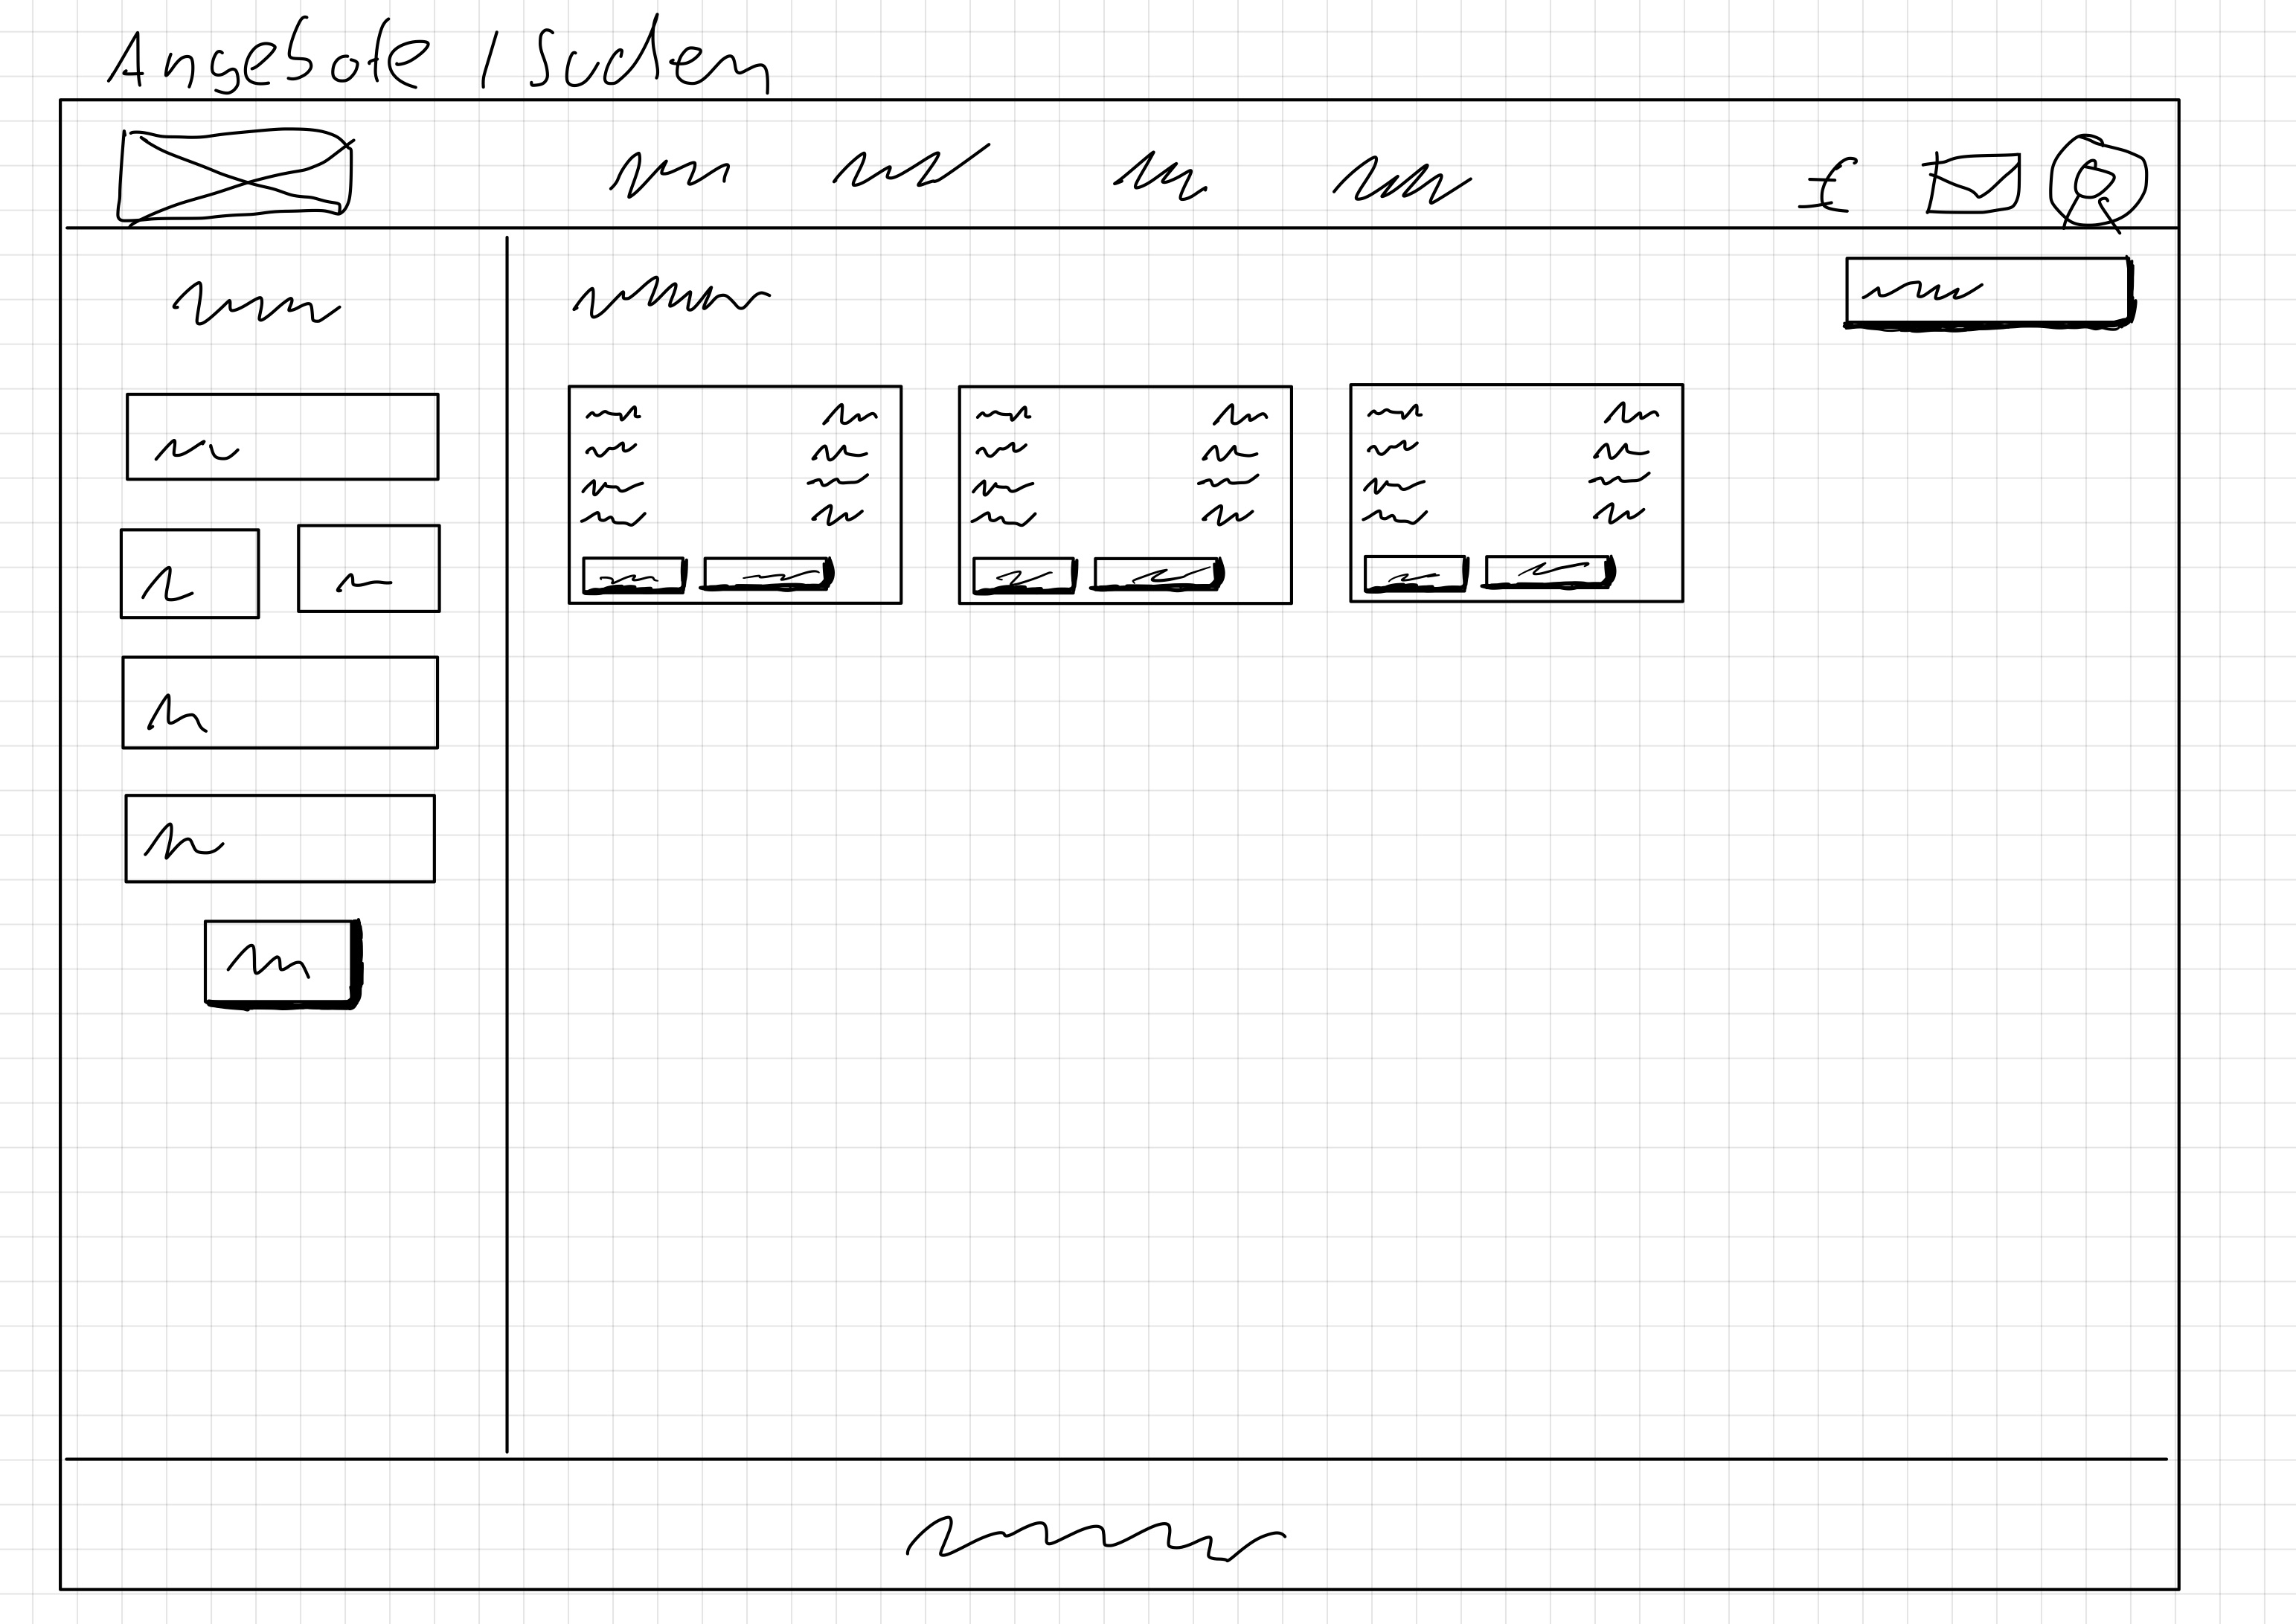 Angebote / Suchen